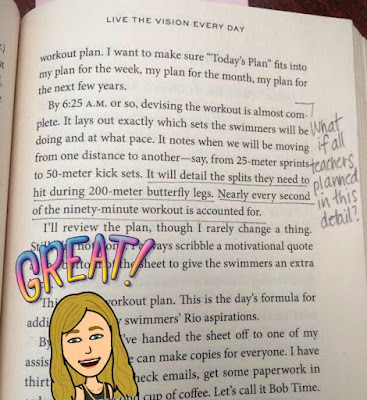 LIVE THE VISION EVERY DAY
workout plan. I want to make sure “Today’s Plan” fits into
my plan for the week, my plan for the month, my plan for
the next few years.
By 6:25 A.M. or so, devising the workout is almost com-
plete. It lays out exactly which sets the swimmers will be
doing and at what pace. It notes when we will be moving
from one distance to another—say, from 25-meter sprints
to 50-meter kick sets. It will detail the splits they need to
hit during 200-meter butterfly legs. Nearly every second
of the ninety-minute workout is accounted for.
What
if all
teachers
planned
in this
detail?
I’ll review the plan, though I rarely change a thing.
scribble a motivational quote
sheet to give the swimmers an extra
GREAT!
workout plan. This is the day’s formula for
swimmers’ Rio aspirations.
By handed the sheet off to one of my
can make copies for everyone. I have
check emails, get some paperwork in
cup of coffee. Let’s call it Bob Time.